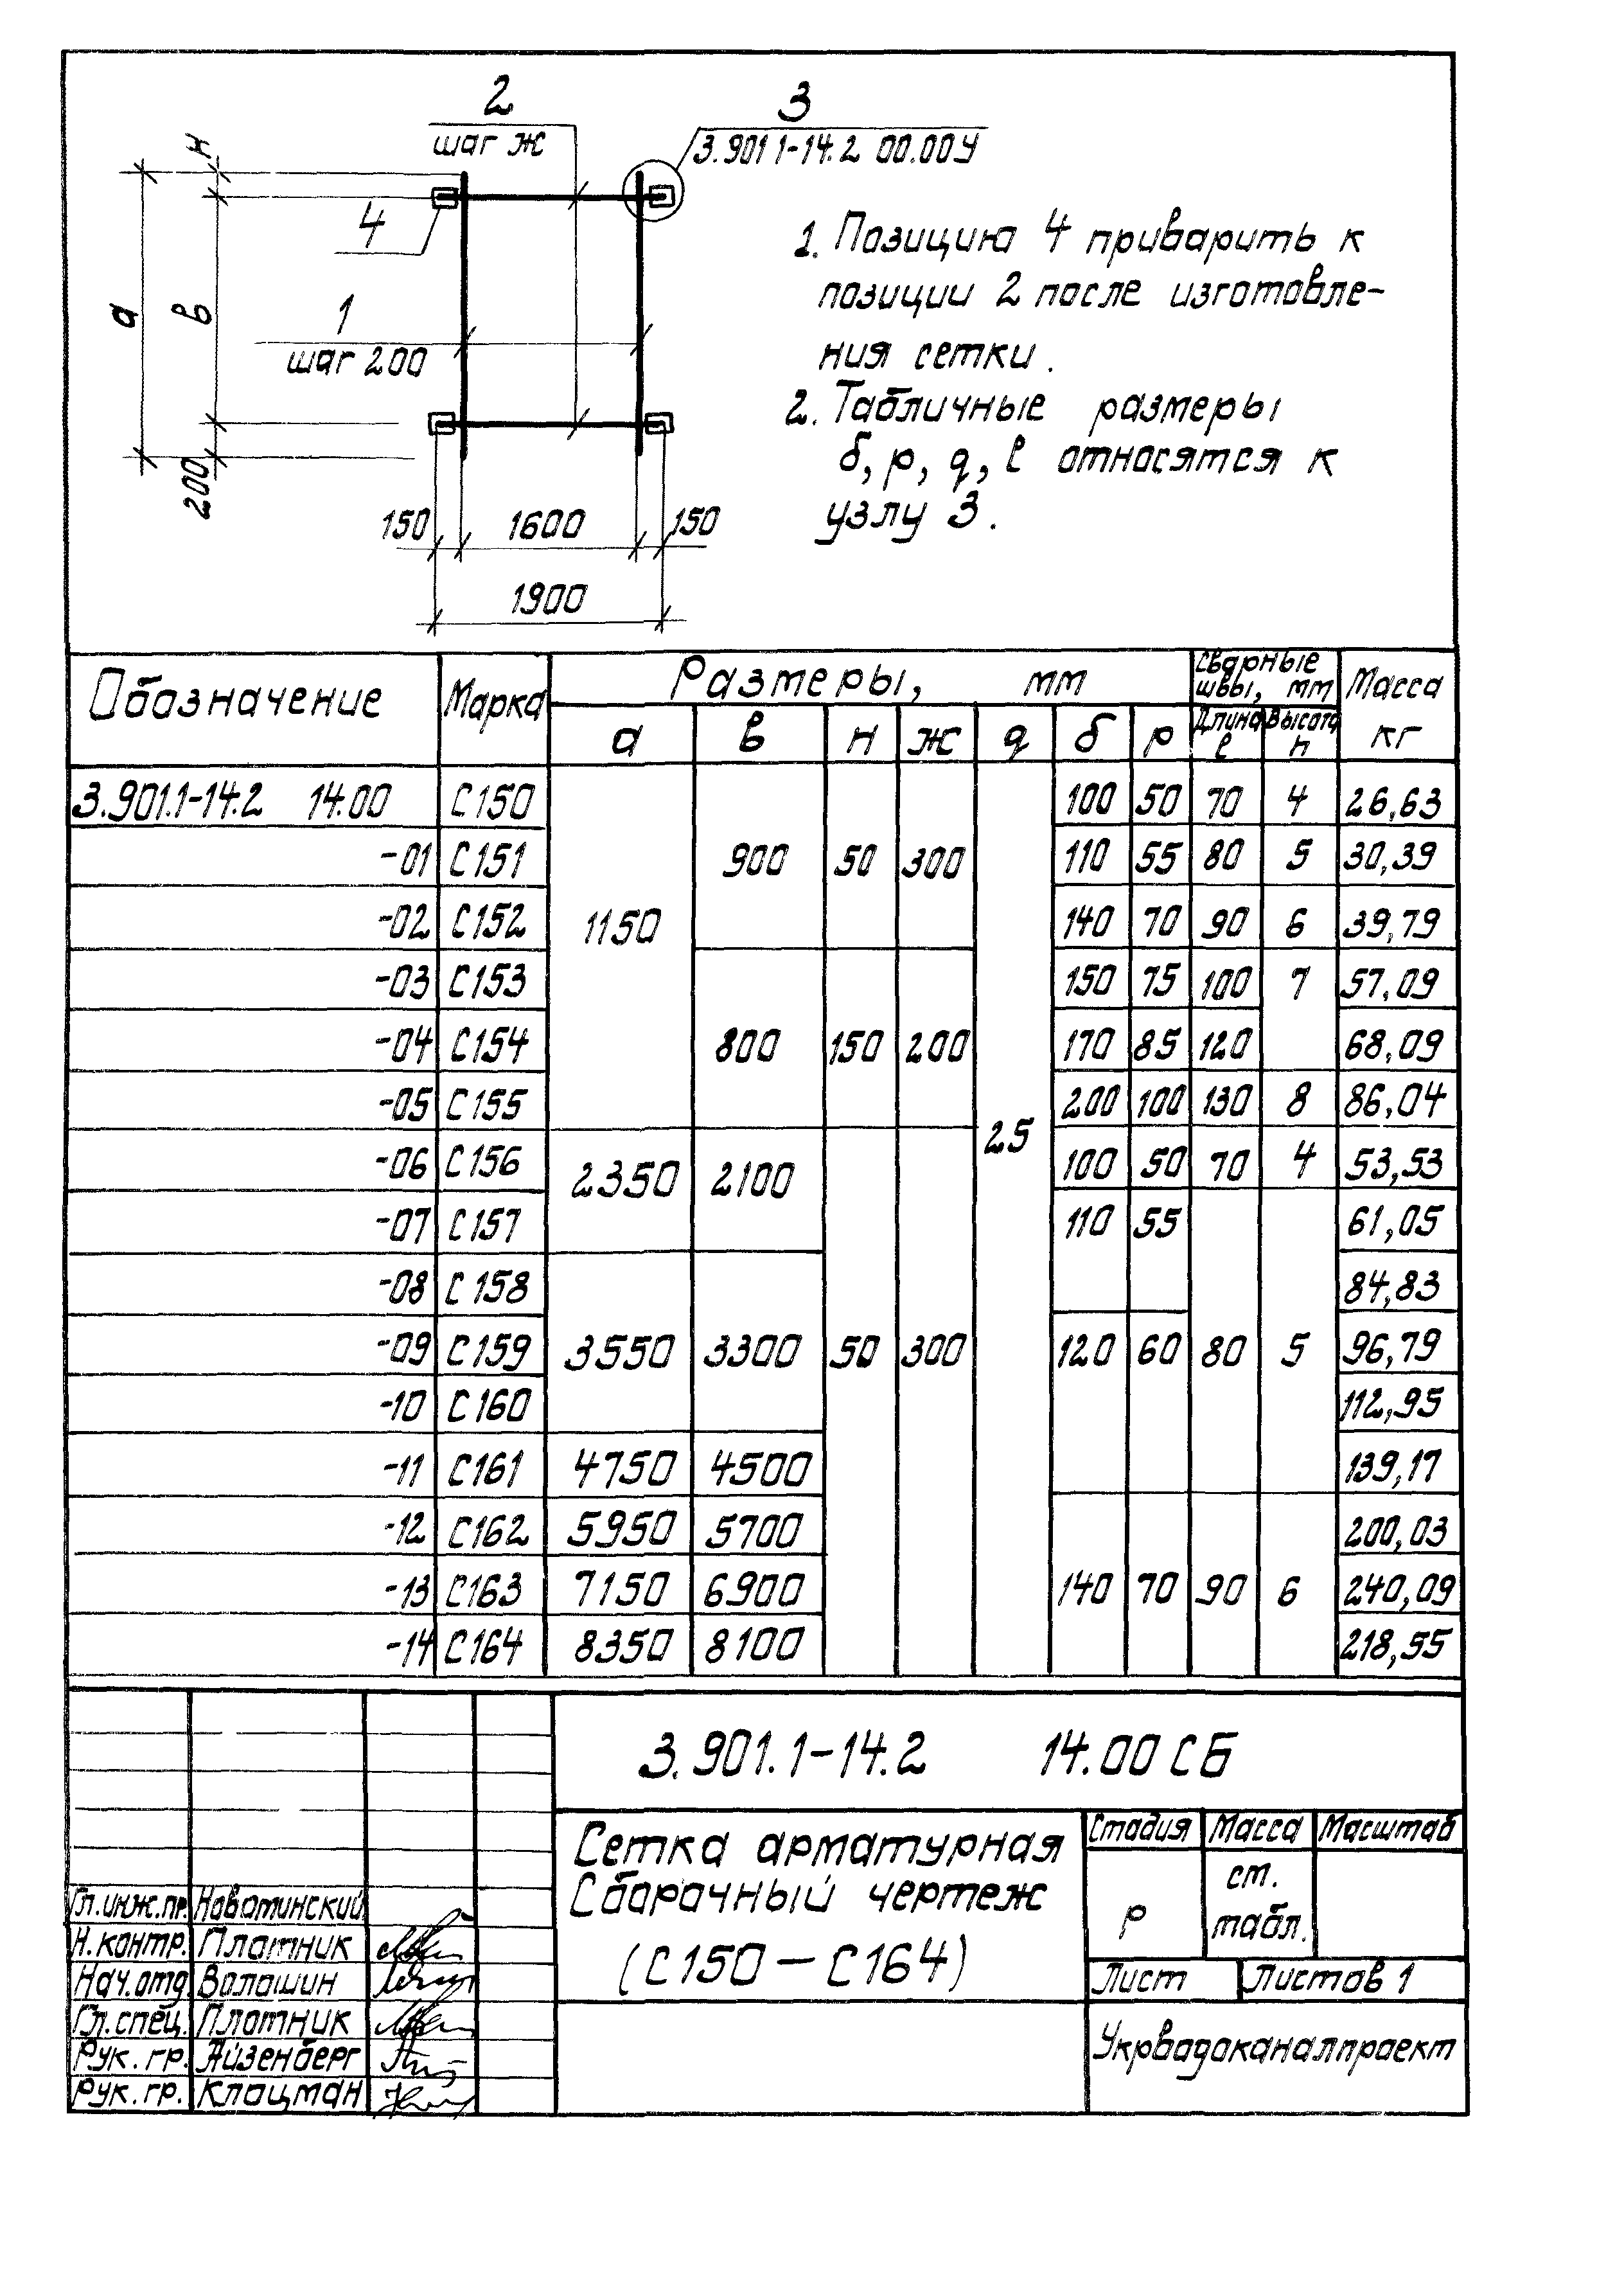 2
шаг ж
3
3.901 1-14.2 00.00У
н
4
а
в
1
шаг 200
200
150 1600 150
1900
1. Позицию 4 приварить к
позиции 2 после изготовле-
ния сетки.
2. Табличные размеры
б, р, q, ℓ относятся к
узлу 3.
Обозначение Марка Размеры, мм Сварные швы, мм Масса кг
а в н ж q б р Длина ℓ Высота h
3.901.1-14.2 14.00 С150 100 50 70 4 26,63
-01 С151 900 50 300 110 55 80 5 30,39
-02 С152 1150 140 70 90 6 39,79
-03 С153 150 75 100 7 57,09
-04 С154 800 150 200 170 85 120 68,09
-05 С155 25 200 100 130 8 86,04
-06 С156 2350 2100 100 50 70 4 53,53
-07 С157 110 55 61,05
-08 С158 84,83
-09 С159 3550 3300 50 300 120 60 80 5 96,79
-10 С160 112,95
-11 С161 4750 4500 139,17
-12 С162 5950 5700 200,03
-13 С163 7150 6900 140 70 90 6 240,09
-14 С164 8350 8100 218,55
3.901.1-14.2 14.00 СБ
Сетка арматурная
Сборочный чертеж
(С150 — С164)
Стадия Масса Масштаб
Р ст. табл.
Лист Листов 1
Укрводоканалпроект
Гл.инж.пр. Новотинский
Н.контр. Плотник
Нач.отд. Волошин
Гл.спец. Плотник
Рук.гр. Айзенберг
Рук.гр. Клацман